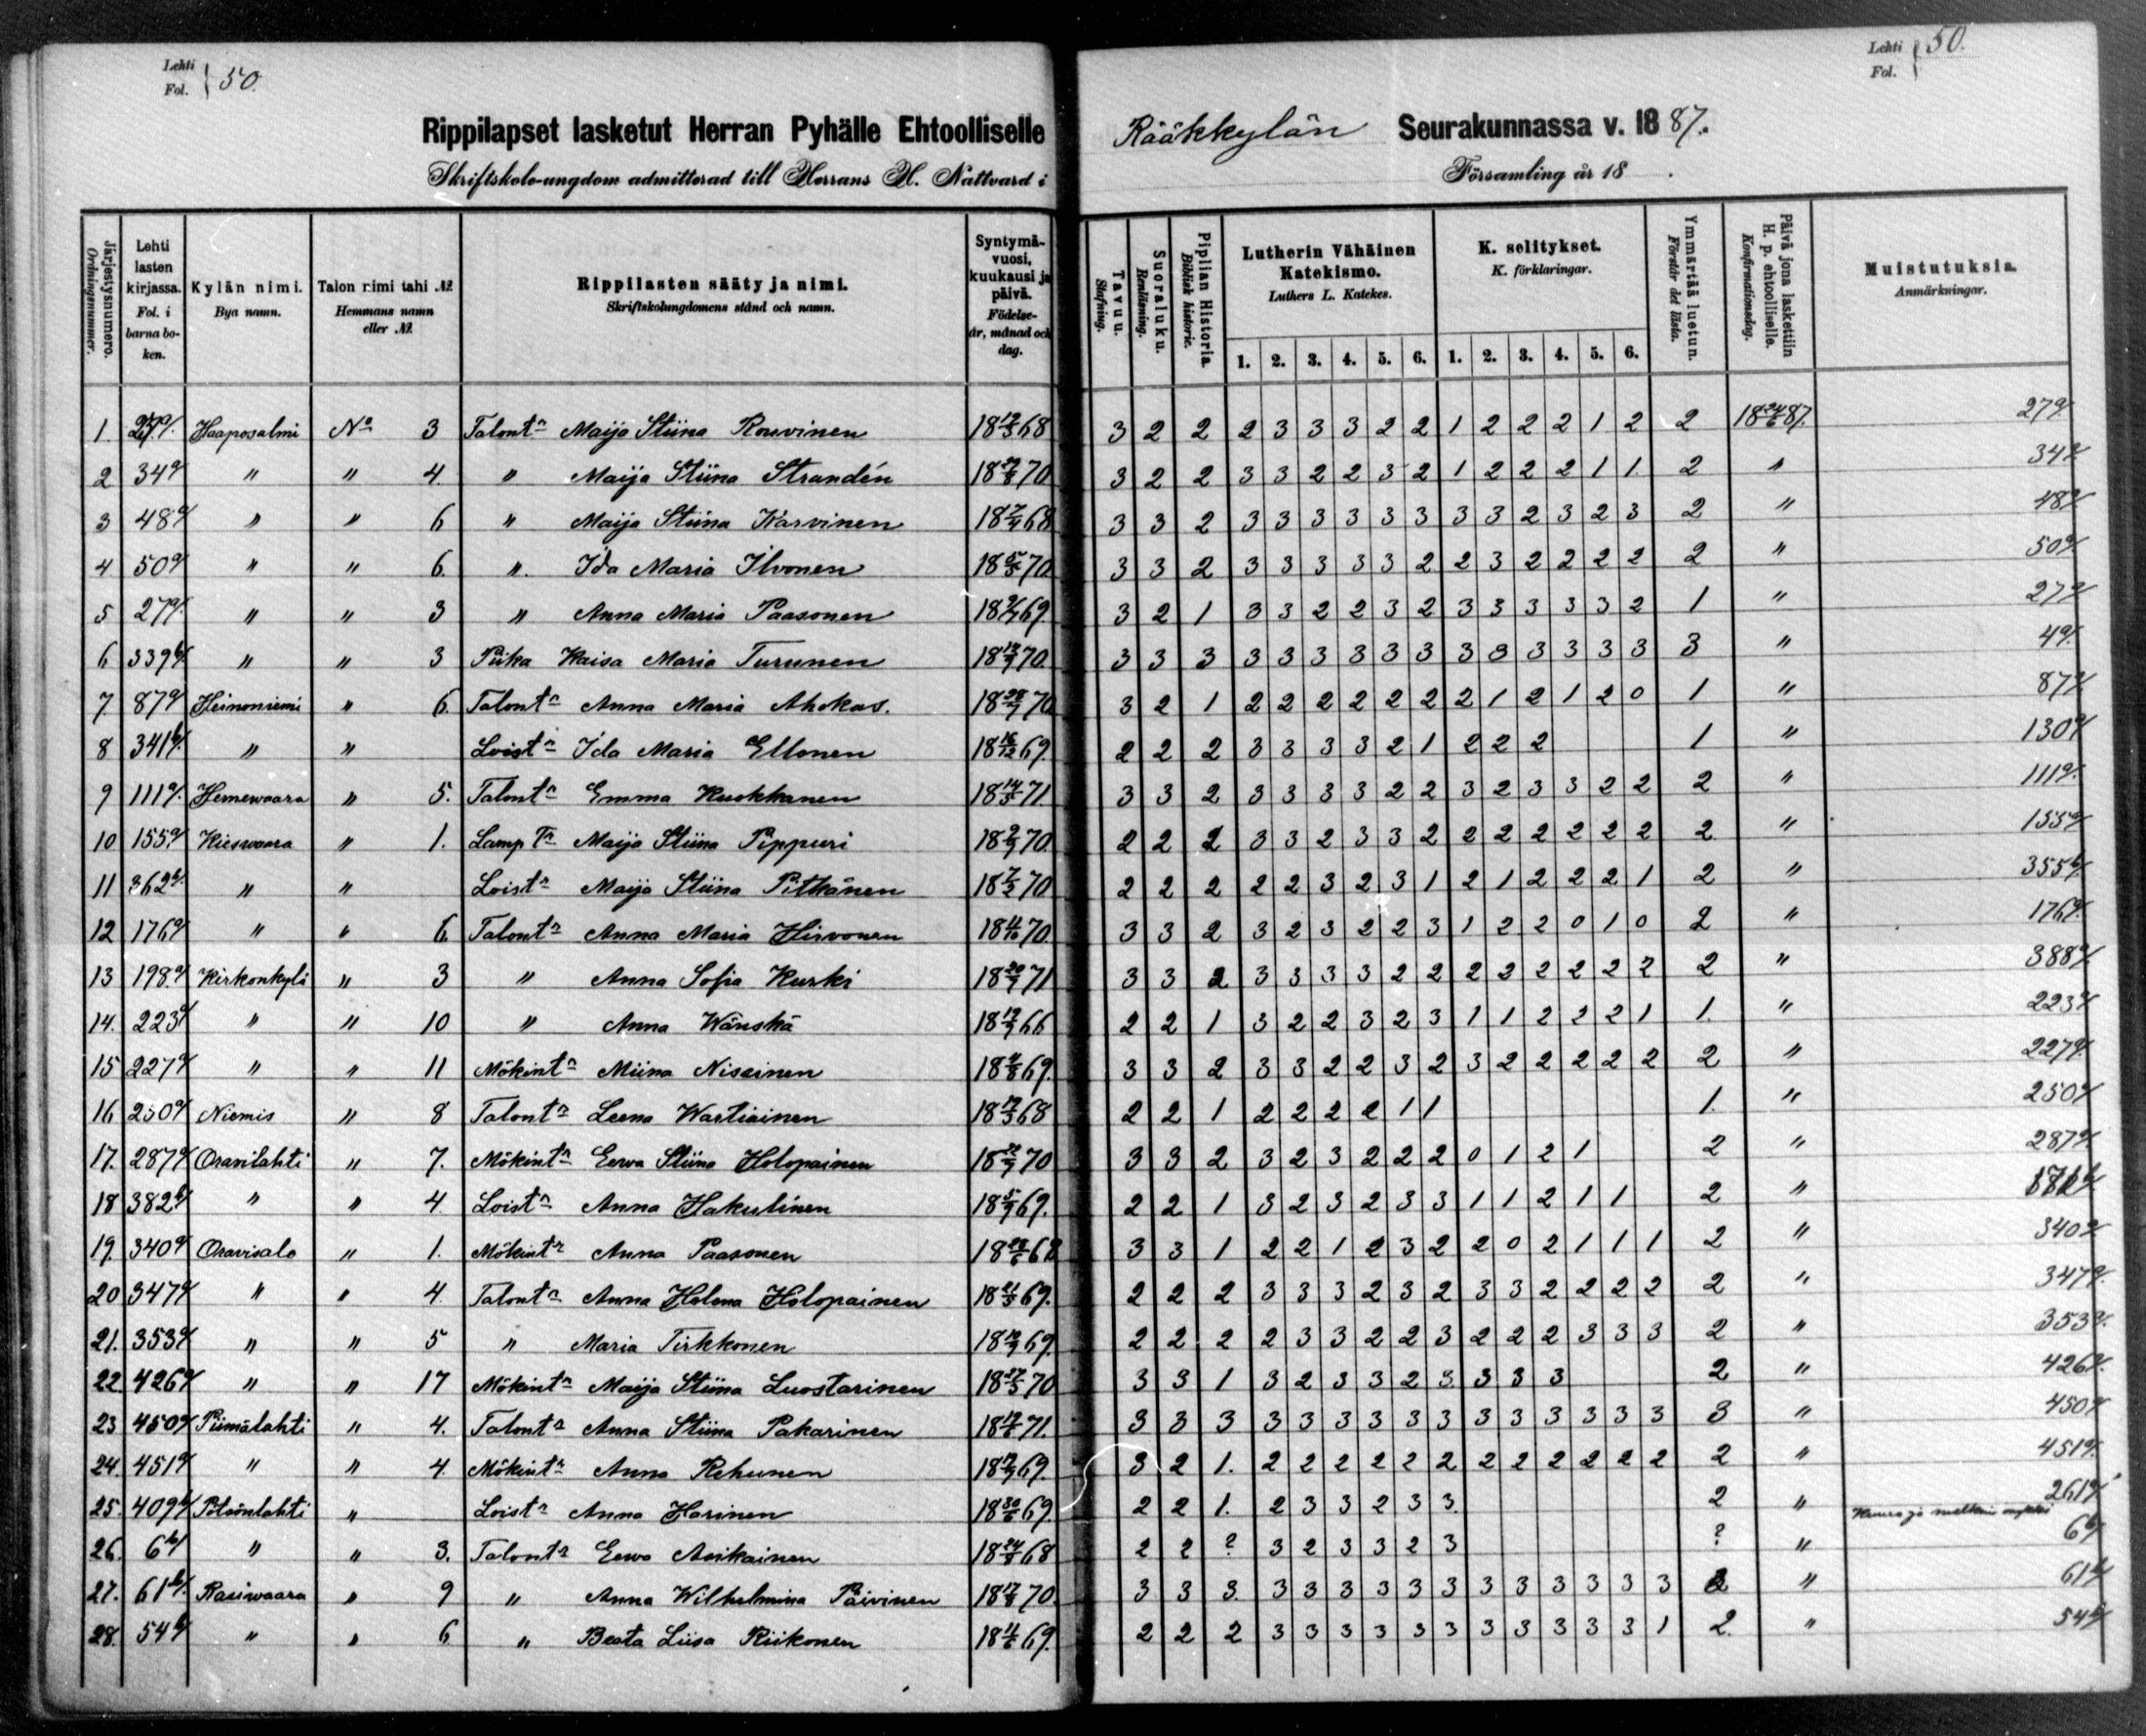 Lehti
Fol. } 50.
Lehti
Fol. } 50.
Rippilapset lasketut Herran Pyhälle Ehtoolliselle Rääkkylän Seurakunnassa v. 1887.
Skriftskole-ungdom admitterad till Herrans H. Nattvard i Församling år 18 .
Järjestysnumero. Ordningsnummer.
Lehti lasten kirjassa. Fol. i barna boken.
Kylän nimi. Bya namn.
Talon nimi tahi № Hemmans namn eller №
Rippilasten sääty ja nimi. Skriftskolungdomens stånd och namn.
Syntymä-vuosi, kuukausi ja päivä. Födelse-år, månad och dag.
Tavuu. Stafning.
Suoraluku. Renläsning.
Piplian Historia. Biblisk historie.
Lutherin Vähäinen Katekismo. Luthers L. Katekes.
K. selitykset. K. förklaringar.
Ymmärtää luetun. Förstår det lästa.
Päivä jona laskettiin H. p. ehtoolliselle. Konfirmationsdag.
Muistutuksia. Anmärkningar.
1. 2. 3. 4. 5. 6. 1. 2. 3. 4. 5. 6.
1. 27a/. Haaposalmi No 3 Talontr Maija Stiina Rouvinen 18 12/3 68 3 2 2 2 3 3 3 2 2 1 2 2 2 1 2 2 18 24/6 87. 27a/.
2 34a/ " " 4. " Maija Stiina Strandén 70 3 2 2 3 3 2 2 3 2 1 2 2 2 1 1. 2 " 34a/
3 48a/ " " 6 " Maija Stiina Karvinen 18 7/4 68 3 3 2 3 3 3 3 3 3 3 3 2 3 2 3 2 " 48a/
4 50a/ " " 6. " Ida Maria Ilvonen 70 3 3 2 3 3 3 3 3 2 2 3 2 2 2 2 2 " 50a/
5 27a/. " " 3 " Anna Maria Paasonen 69 3 2 1 3 3 2 2 3 2 3 3 3 3 3 2 1 " 27a/
6 339b/ " " 3 Piika Kaisa Maria Turunen 70 3 3 3 3 3 3 3 3 3 3 3 3 3 3 3 3 " 4a/.
7. 87a/ Heinoniemi " 6. Talontr Anna Maria Ahokas. 18 28/7 70 3 2 1 2 2 2 2 2 2 2 1 2 1 2 0 1 " 87a/
8 341b/. " " Loistr Ida Maria Ellonen 18 16/12 69. 2 2 2 3 3 3 3 2 1 2 2 2 1 " 130a/
9 111a/. Hernewaara " 5. Talontr Emma Kuokkanen 18 14/5 71 3 3 2 3 3 3 3 2 2 3 2 3 3 2 2 2 " 111a/.
10 155a/ Kieswaara " 1. Lamp Tr Maija Stiina Pippuri 70 2 2 2 3 3 2 3 3 2 2 2 2 2 2 2 2 " 155a/
11 362b/. " " Loistr Maija Stiina Pitkänen 18 7/2 70 2 2 2 2 2 3 2 3 1 2 1 2 2 2 1 2 " 355b/
12 176a/ " " 6. Talontr Anna Maria Hirvonen 18 4/10 70 3 3 2 3 2 3 2 2 3 1 2 2 0 1 0 2 " 176a/.
13 198a/ Kirkonkylä " 3 " Anna Sofia Kurki 71 3 3 2 3 3 3 3 2 2 2 2 2 2 2 2 2 " 388a/
14. 223a/ " " 10 " Anna Wänskä 66 2 2 1 3 2 2 3 2 3 1 1 2 2 2 1 1. " 223a/
15 227a/ " " 11 Mökintr Miina Nissinen 69. 3 3 2 3 3 2 2 3 2 3 2 2 2 2 2 2 " 227a/.
16 250a/ Niemis " 8 Talontr Leena Wartiainen 68 2 2 1 2 2 2 2 1 1 1. " 250a/
17. 287a/ Oravilahti " 7. Mökintr Eeva Stiina Holopainen 70 3 3 2 3 2 3 2 2 2 0 1 2 1 2 " 287a/
18 382b/ " " 4 Loistr Anna Hakulinen 69. 2 2 1 3 2 3 2 3 3 1 1 2 1 1 2 "
19. 340a/ Oravisalo " 1. Mökintr Anna Paasonen 68 3 3 1 2 2 1 2 3 2 2 0 2 1 1 1 2 " 340a/
20 347a/ " " 4. Talontr Anna Helena Holopainen 18 21/5 69. 2 2 2 3 3 3 2 3 2 3 3 2 2 2 2 2 " 347a/.
21. 353a/ " " 5 " Maria Tirkkonen 69. 2 2 2 2 3 3 2 2 3 2 2 2 3 3 3 2 " 353a/.
22 426a/ " " 17 Mökintr Maija Stiina Luostarinen 18 27/5 70 3 3 1 3 2 3 3 2 3 3 3 3 2 " 426a/.
23 450a/ Piimälahti " 4. Talontr Anna Stiina Pakarinen 71. 3 3 3 3 3 3 3 3 3 3 3 3 3 3 3 3 " 450a/
24. 451a/ " " 4. Mökintr Anna Rehunen 69 3 2 1. 2 2 2 2 2 2 2 2 2 2 2 2 2 " 451a/.
25. 409b/ Potsönlahti " Loistr Anna Harinen 18 30/6 69. 2 2 1. 2 3 3 2 3 3 2 " 261a/
26. 6b/ " " 3. Talontr Eewa Asikainen 68 2 2 ? 3 2 3 3 2 3 ? " Kuuro ja melkein mykkä 6b/
27. 61b/. Rasiwaara " 9 " Anna Wilhelmina Päivinen 70. 3 3 3. 3 3 3 3 3 3 3 3 3 3 3 3 " 61b/
28. 54b/ " " 6 " Beata Liisa Riikonen 18 11/6 69. 2 2 2 3 3 3 3 3 3 3 3 3 3 3 1 2. " 54b/